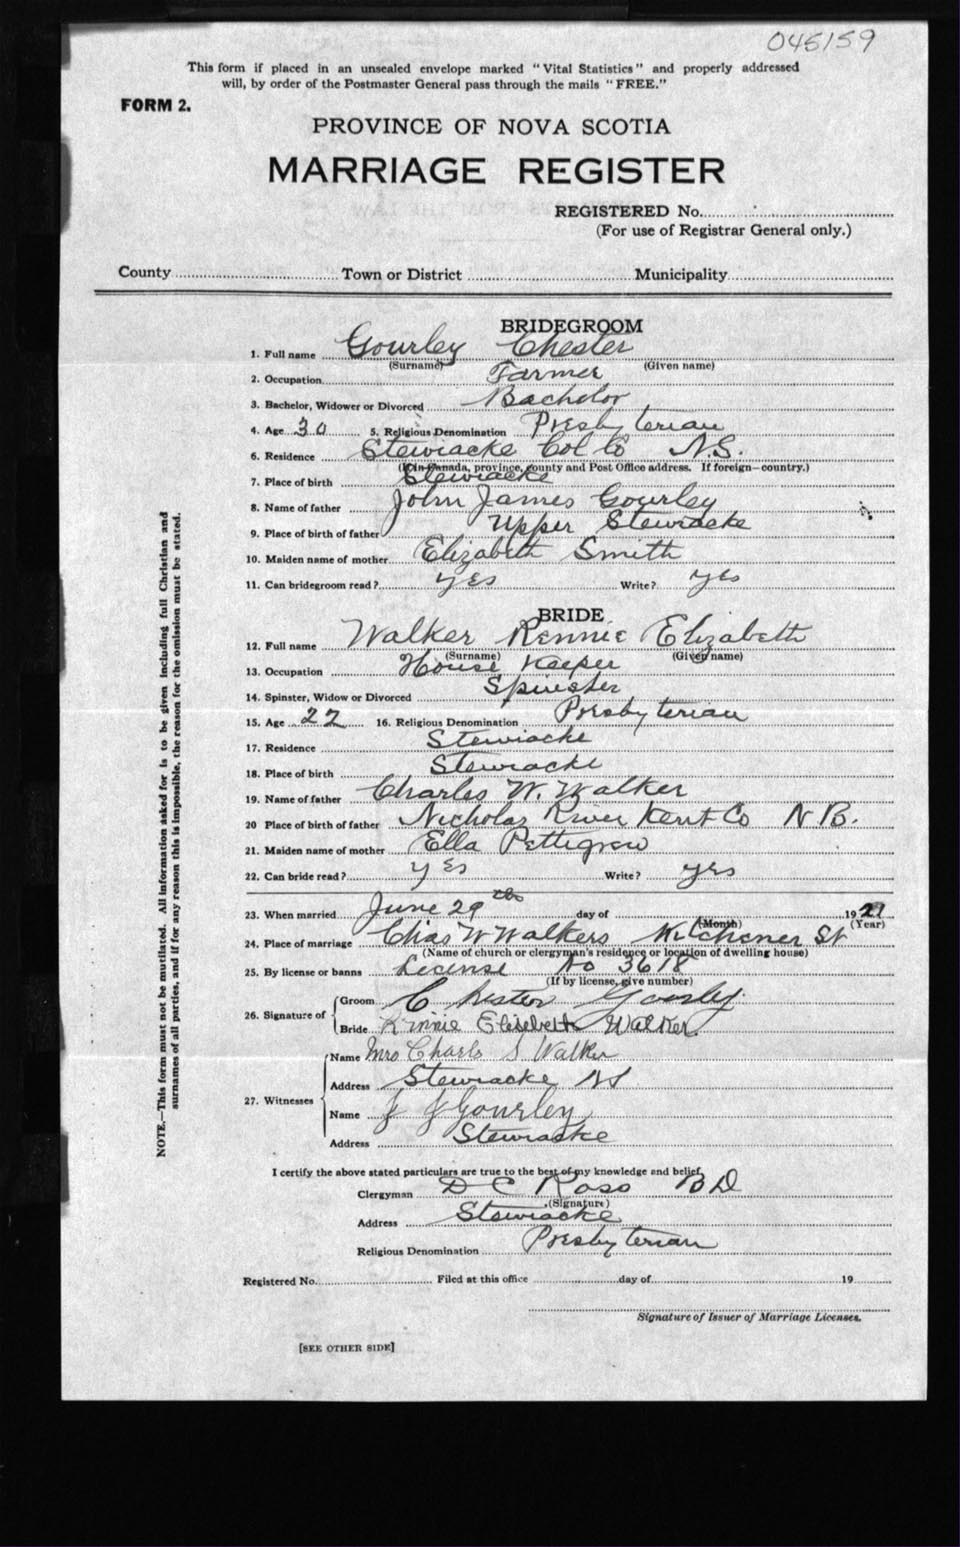 045159
This form if placed in an unsealed envelope marked "Vital Statistics" and properly addressed
will, by order of the Postmaster General pass through the mails "FREE."
FORM 2.
PROVINCE OF NOVA SCOTIA
MARRIAGE REGISTER
REGISTERED No.
(For use of Registrar General only.)
County Town or District Municipality
BRIDEGROOM
1. Full name Gourley Chester
(Surname) (Given name)
2. Occupation Farmer
3. Bachelor, Widower or Divorced Bachelor
4. Age 30 5. Religious Denomination Presbyterian
6. Residence Stewiacke Col Co N.S.
(If in Canada, province, county and Post Office address. If foreign—country.)
7. Place of birth Stewiacke
8. Name of father John James Gourley
9. Place of birth of father Upper Stewiacke
10. Maiden name of mother Elizabeth Smith
11. Can bridegroom read? yes Write? yes
BRIDE
12. Full name Walker Rennie Elizabeth
(Surname) (Given name)
13. Occupation House Keeper
14. Spinster, Widow or Divorced Spinster
15. Age 22 16. Religious Denomination Presbyterian
17. Residence Stewiacke
18. Place of birth Stewiacke
19. Name of father Charles W. Walker
20 Place of birth of father Nicholas River Kent Co N.B.
21. Maiden name of mother Ella Pettigrew
22. Can bride read? yes Write? yes
23. When married June 29th day of 19
(Month) (Year)
24. Place of marriage Chas W Walkers Kitchener St
(Name of church or clergyman's residence or location of dwelling house)
25. By license or banns License No 3618
(If by license, give number)
26. Signature of Groom Chester Gourley
Bride Rinnie Elisebeth Walker.
27. Witnesses Name Mrs Charls S Walker
Address Stewiacke NS
Name J J Gourley
Address Stewiacke
I certify the above stated particulars are true to the best of my knowledge and belief.
Clergyman D C Ross B D
(Signature)
Address Stewiacke
Religious Denomination Presbyterian
Registered No. Filed at this office day of 19
Signature of Issuer of Marriage Licenses.
[SEE OTHER SIDE]
NOTE.—This form must not be mutilated. All information asked for is to be given including full Christian and
surnames of all parties, and if for any reason this is impossible, the reason for the omission must be stated.